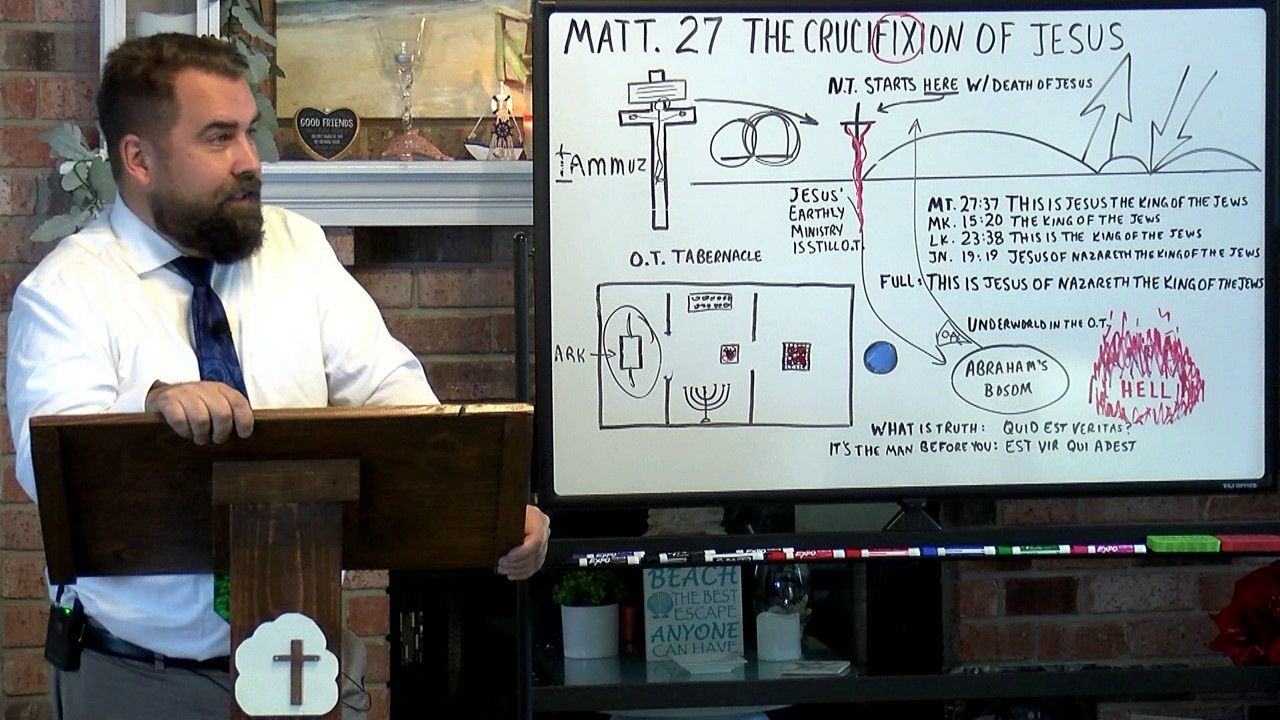 MATT. 27 THE CRUCIFIXION OF JESUS
N.T. STARTS HERE W/ DEATH OF JESUS
tAMMUZ
JESUS'
EARTHLY
MINISTRY
IS STILL O.T.
MT. 27:37 THIS IS JESUS THE KING OF THE JEWS
MK. 15:20 THE KING OF THE JEWS
LK. 23:38 THIS IS THE KING OF THE JEWS
JN. 19:19 JESUS OF NAZARETH THE KING OF THE JEWS
FULL: THIS IS JESUS OF NAZARETH THE KING OF THE JEWS
O.T. TABERNACLE
ARK
UNDERWORLD IN THE O.T.
ABRAHAM'S
BOSOM
HELL
WHAT IS TRUTH: QUID EST VERITAS?
IT'S THE MAN BEFORE YOU: EST VIR QUI ADEST
GOOD FRIENDS
EXPO
EXPO
EXPO
EXPO
BEACH
THE BEST
ESCAPE
ANYONE
CAN HAVE